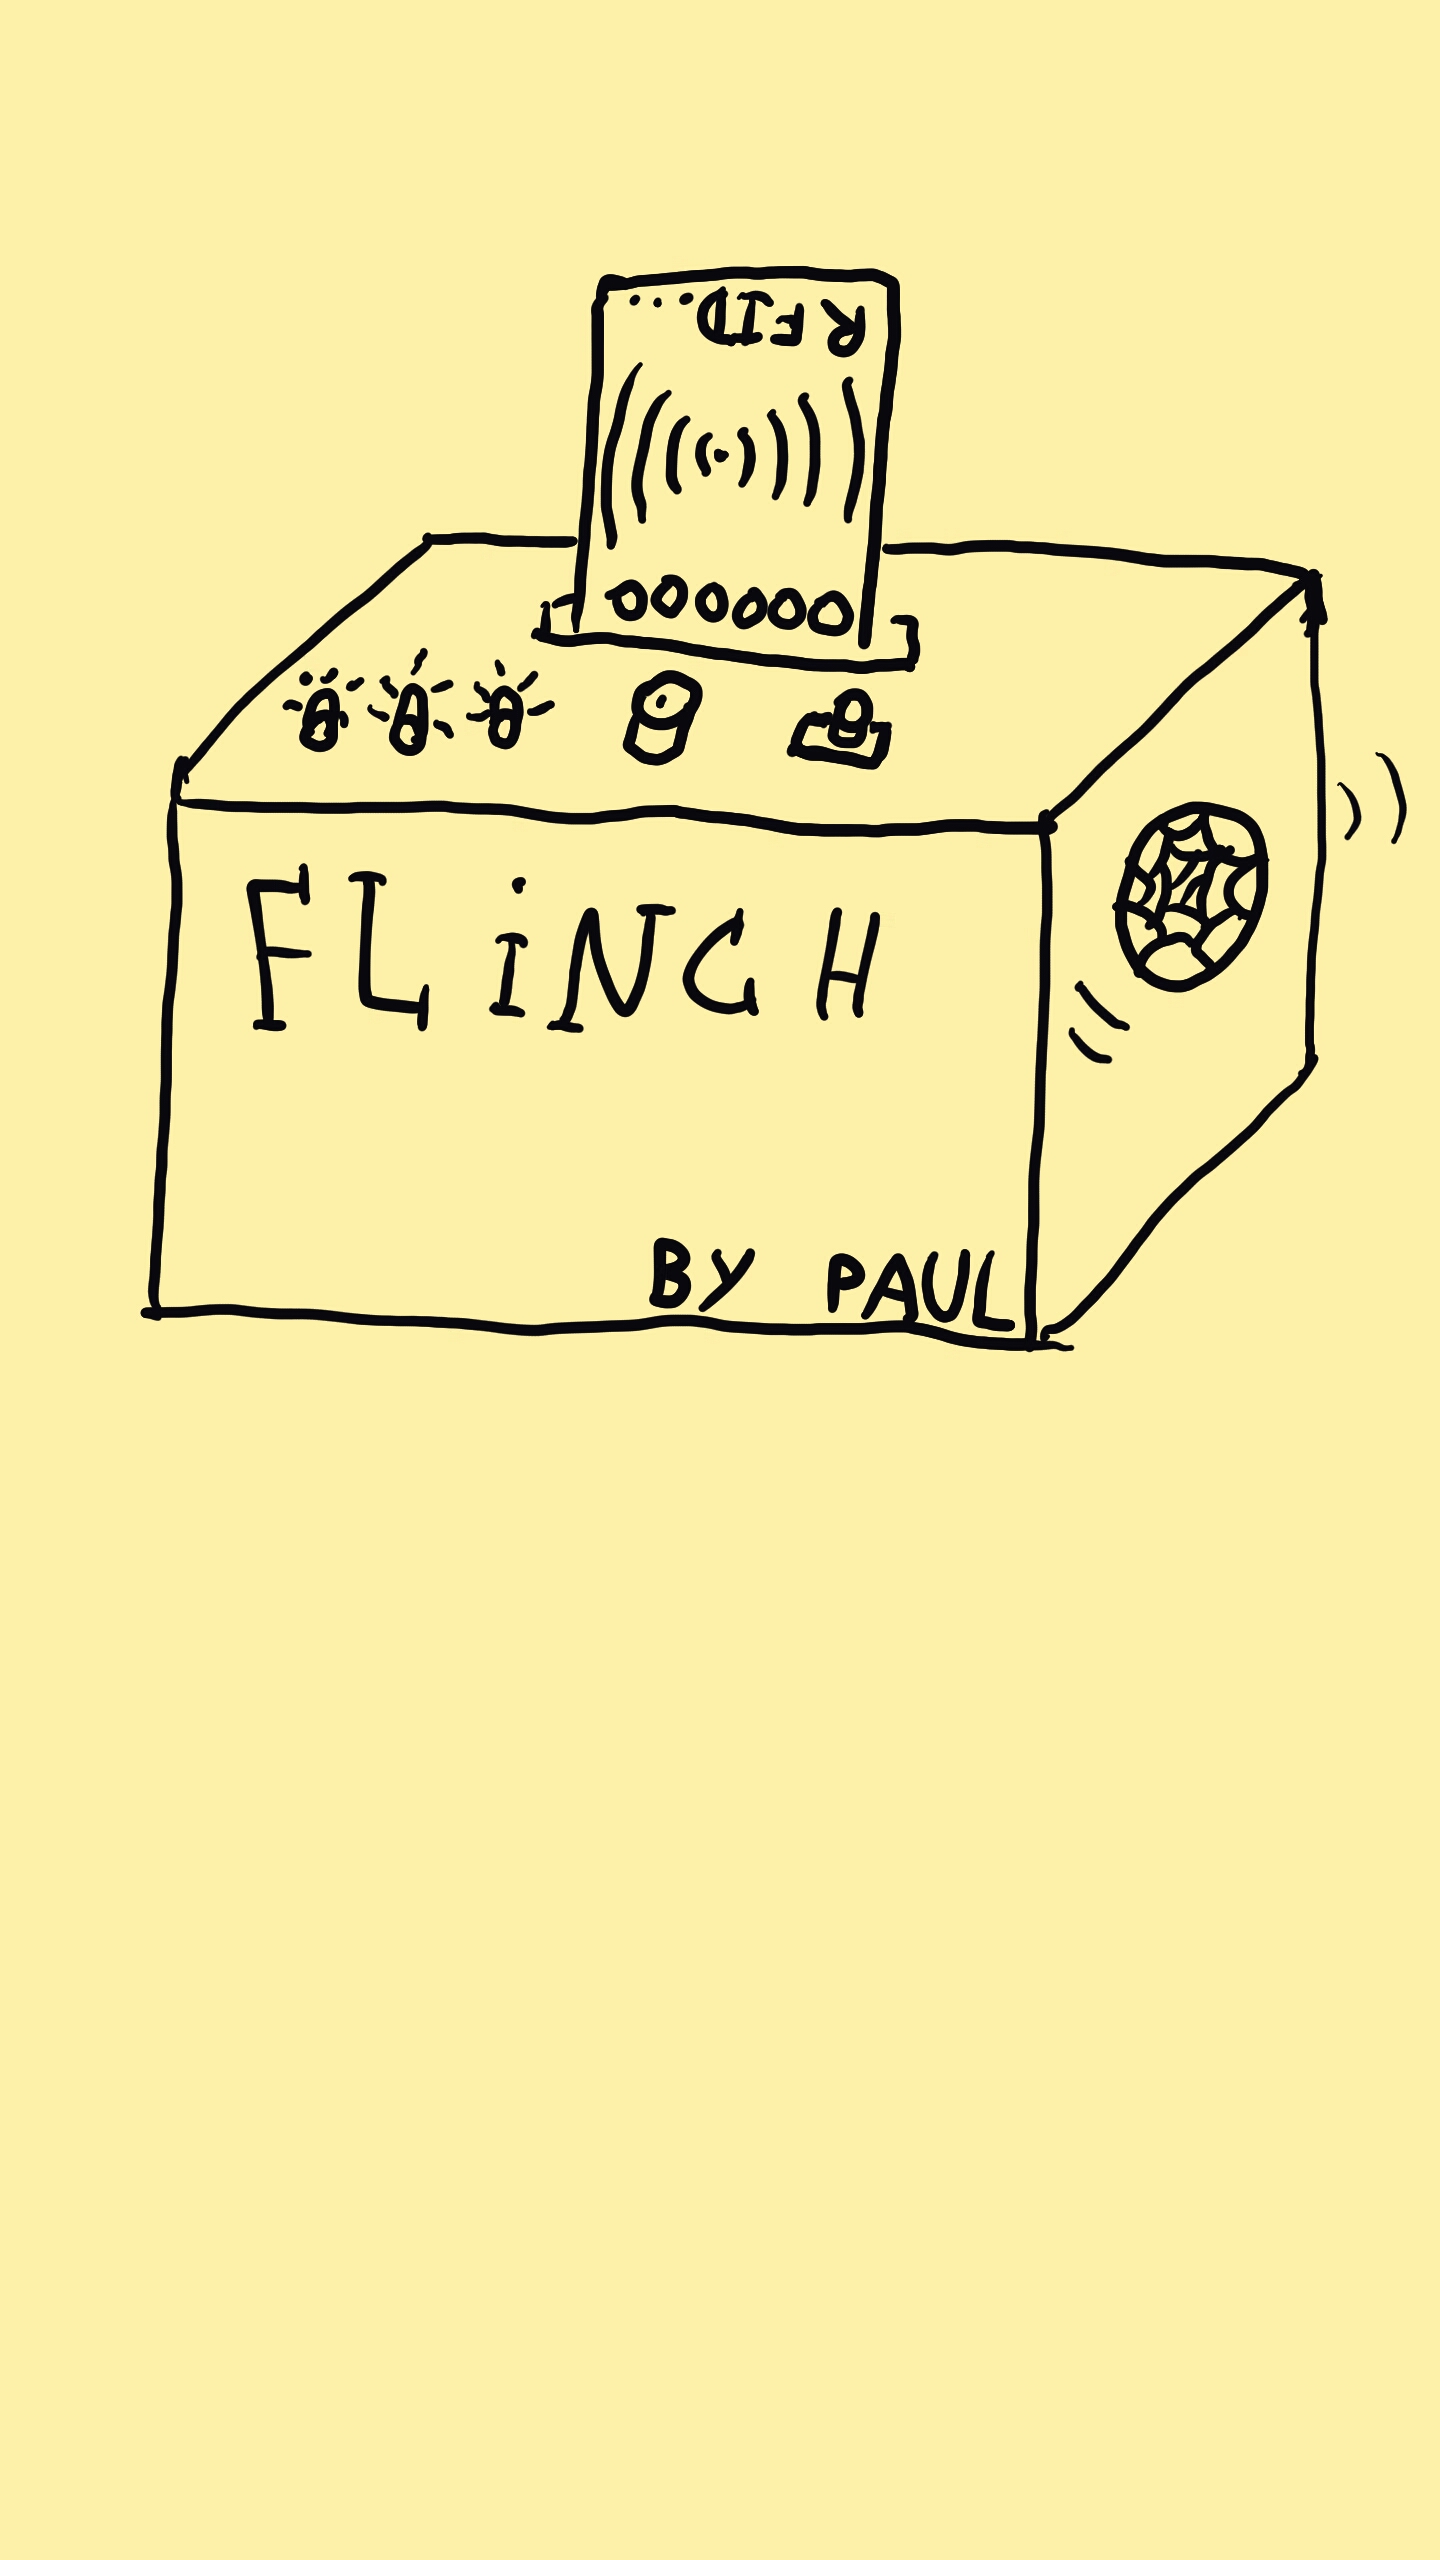 RFID...
FLiNCH
BY PAUL